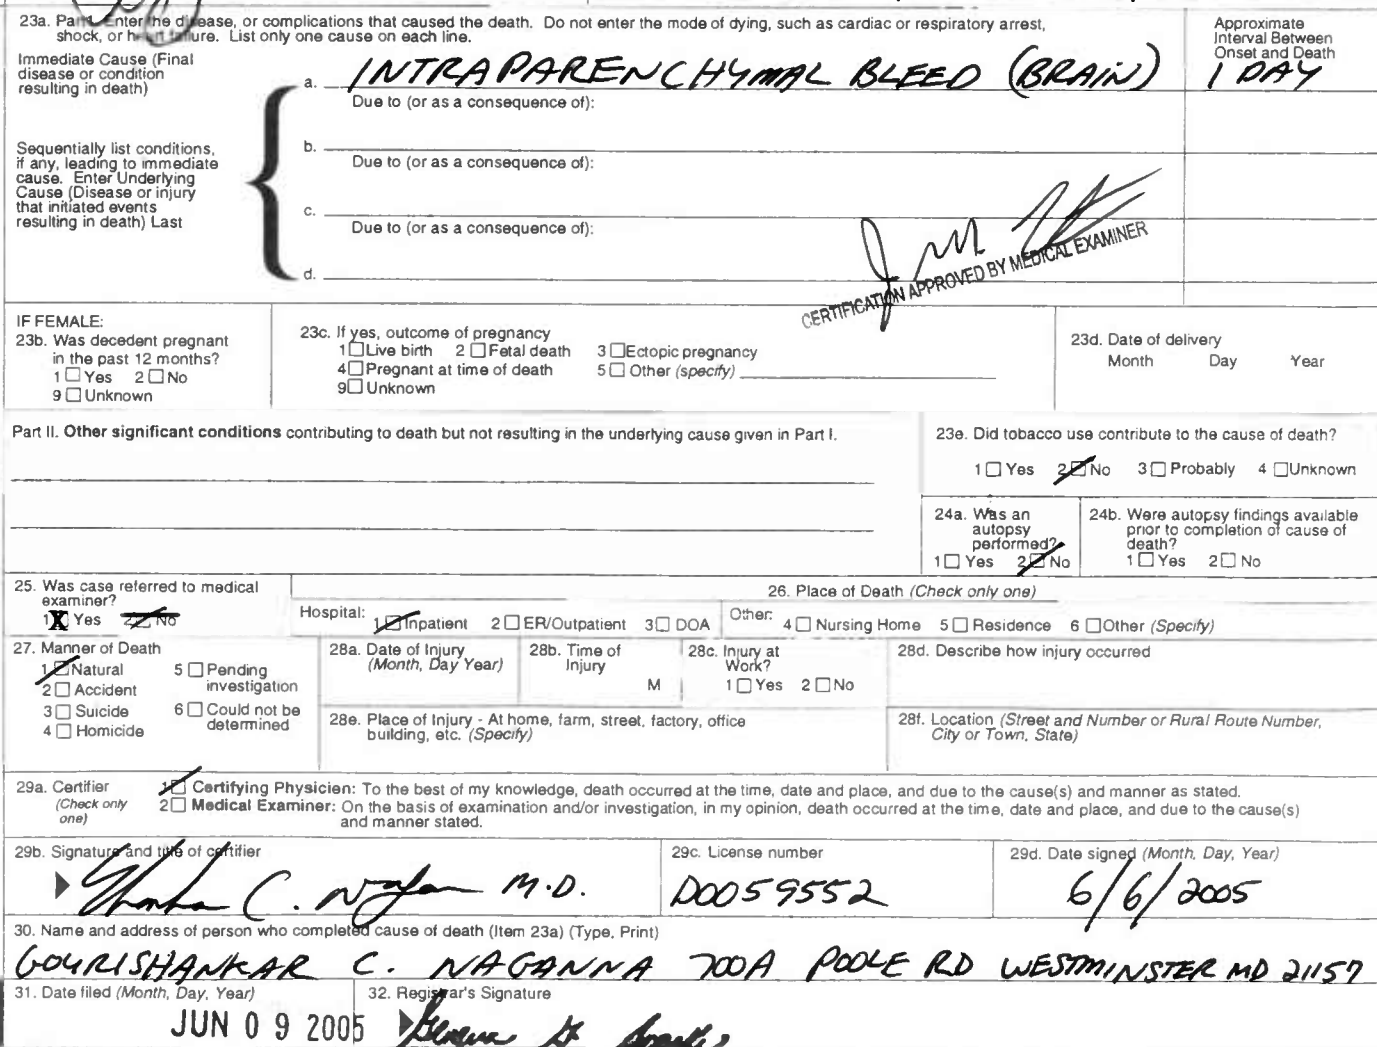 23a. Part I. Enter the disease, or complications that caused the death. Do not enter the mode of dying, such as cardiac or respiratory arrest,
shock, or heart failure. List only one cause on each line.
Approximate
Interval Between
Onset and Death
Immediate Cause (Final
disease or condition
resulting in death)
a. INTRAPARENCHYMAL BLEED (BRAIN) 1 DAY
Due to (or as a consequence of):
Sequentially list conditions,
if any, leading to immediate
cause. Enter Underlying
Cause (Disease or injury
that initiated events
resulting in death) Last
b.
Due to (or as a consequence of):
c.
Due to (or as a consequence of):
d.
CERTIFICATION APPROVED BY MEDICAL EXAMINER
IF FEMALE:
23b. Was decedent pregnant
in the past 12 months?
1 ☐ Yes 2 ☐ No
9 ☐ Unknown
23c. If yes, outcome of pregnancy
1 ☐ Live birth 2 ☐ Fetal death 3 ☐ Ectopic pregnancy
4 ☐ Pregnant at time of death 5 ☐ Other (specify)
9 ☐ Unknown
23d. Date of delivery
Month Day Year
Part II. Other significant conditions contributing to death but not resulting in the underlying cause given in Part I.
23e. Did tobacco use contribute to the cause of death?
1 ☐ Yes 2 ☑ No 3 ☐ Probably 4 ☐ Unknown
24a. Was an
autopsy
performed?
1 ☐ Yes 2 ☑ No
24b. Were autopsy findings available
prior to completion of cause of
death?
1 ☐ Yes 2 ☐ No
25. Was case referred to medical
examiner?
1 X Yes 2 ☑ No
26. Place of Death (Check only one)
Hospital: 1 ☑ Inpatient 2 ☐ ER/Outpatient 3 ☐ DOA Other: 4 ☐ Nursing Home 5 ☐ Residence 6 ☐ Other (Specify)
27. Manner of Death
1 ☑ Natural 5 ☐ Pending
investigation
2 ☐ Accident
3 ☐ Suicide 6 ☐ Could not be
determined
4 ☐ Homicide
28a. Date of Injury
(Month, Day Year)
28b. Time of
Injury
M
28c. Injury at
Work?
1 ☐ Yes 2 ☐ No
28d. Describe how injury occurred
28e. Place of Injury - At home, farm, street, factory, office
building, etc. (Specify)
28f. Location (Street and Number or Rural Route Number,
City or Town, State)
29a. Certifier
(Check only
one)
1 ☑ Certifying Physicien: To the best of my knowledge, death occurred at the time, date and place, and due to the cause(s) and manner as stated.
2 ☐ Medical Examiner: On the basis of examination and/or investigation, in my opinion, death occurred at the time, date and place, and due to the cause(s)
and manner stated.
29b. Signature and title of certifier
M.D.
29c. License number
D0059552
29d. Date signed (Month, Day, Year)
6/6/2005
30. Name and address of person who completed cause of death (Item 23a) (Type, Print)
GOURISHANKAR C. NAGANNA 700A POOLE RD WESTMINSTER MD 21157
31. Date filed (Month, Day, Year)
JUN 09 2005
32. Registrar's Signature